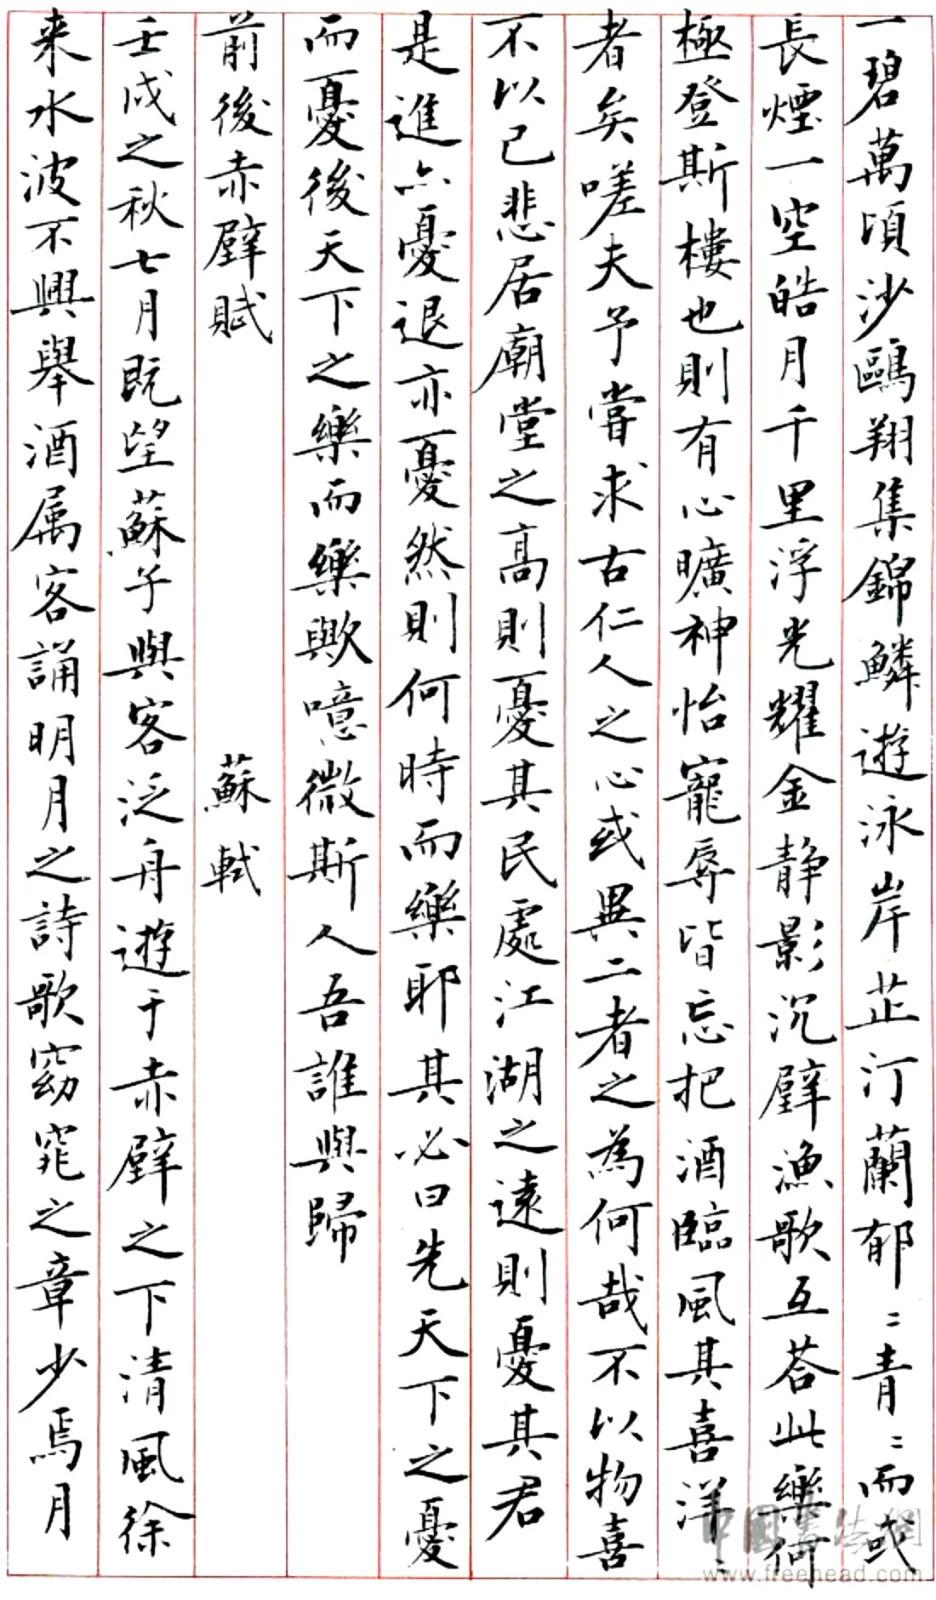 一碧萬頃沙鷗翔集錦鱗遊泳岸芷汀蘭郁〻青〻而或
長煙一空皓月千里浮光耀金静影沉璧漁歌互荅此樂何
極登斯樓也則有心曠神怡寵辱皆忘把酒臨風其喜洋〻
者矣嗟夫予嘗求古仁人之心或異二者之為何哉不以物喜
不以己悲居廟堂之高則憂其民處江湖之遠則憂其君
是進亦憂退亦憂然則何時而樂耶其必曰先天下之憂
而憂後天下之樂而樂歟噫微斯人吾誰與歸
前後赤壁賦 蘇軾
壬戌之秋七月既望蘇子與客泛舟遊于赤壁之下清風徐
来水波不興舉酒属客誦明月之詩歌窈窕之章少焉月
中國書法網
www.freehead.com